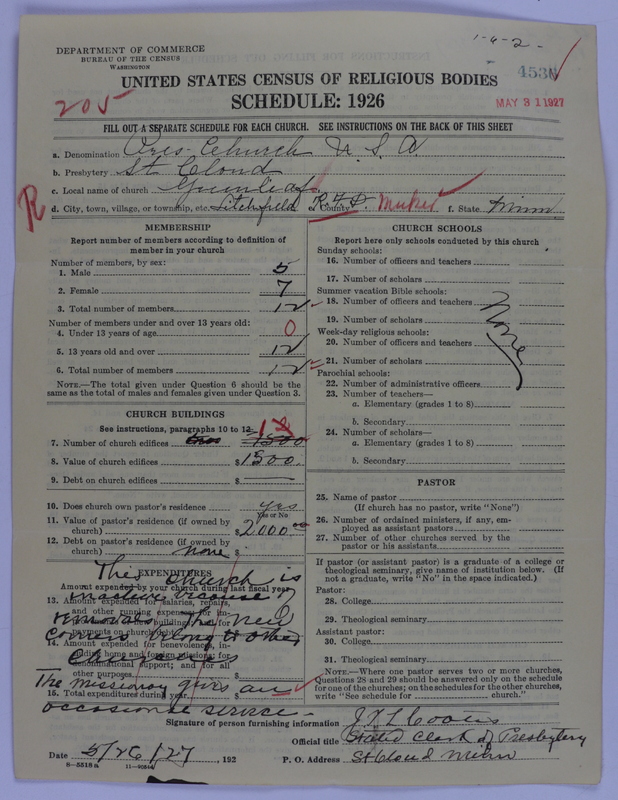 1-6-2-
DEPARTMENT OF COMMERCE
BUREAU OF THE CENSUS
WASHINGTON
4538
UNITED STATES CENSUS OF RELIGIOUS BODIES
SCHEDULE: 1926
205
MAY 31 1927
FILL OUT A SEPARATE SCHEDULE FOR EACH CHURCH. SEE INSTRUCTIONS ON THE BACK OF THIS SHEET
a. Denomination Pres. Church U. S. A.
b. Presbytery St Cloud
c. Local name of church
R d. City, town, village, or township, etc. Litchfield e. County R F D. Meeker f. State Minn
MEMBERSHIP
Report number of members according to definition of member in your church
Number of members, by sex:
1. Male 5
2. Female 7
3. Total number of members 12
Number of members under and over 13 years old:
4. Under 13 years of age 0
5. 13 years old and over 12
6. Total number of members 12
NOTE.—The total given under Question 6 should be the same as the total of males and females given under Question 3.
CHURCH BUILDINGS
See instructions, paragraphs 10 to 12
7. Number of church edifices One 1500 1
8. Value of church edifices $1500.
9. Debt on church edifices $ —
10. Does church own pastor's residence yes
Yes or No
11. Value of pastor's residence (if owned by church) $2000.00
12. Debt on pastor's residence (if owned by church) none $
EXPENDITURES
Amount expended by your church during last fiscal year
13. Amount expended for salaries, repairs, and other running expenses; for improvements; new buildings; for payments on church debt
14. Amount expended for benevolence, including home and foreign missions; for educational support; and for all other purposes
15. Total expenditures during year $
This church is
inactive because of
removals. The new
comers belong to other
churches
The missionary gives an
occasional service —
CHURCH SCHOOLS
Report here only schools conducted by this church
Sunday schools:
16. Number of officers and teachers
17. Number of scholars
Summer vacation Bible schools:
18. Number of officers and teachers
19. Number of scholars
Week-day religious schools:
20. Number of officers and teachers
21. Number of scholars
Parochial schools:
22. Number of administrative officers
23. Number of teachers—
a. Elementary (grades 1 to 8)
b. Secondary
24. Number of scholars—
a. Elementary (grades 1 to 8)
b. Secondary
None
PASTOR
25. Name of pastor
(If church has no pastor, write "None")
26. Number of ordained ministers, if any, employed as assistant pastors
27. Number of other churches served by the pastor or his assistants
If pastor (or assistant pastor) is a graduate of a college or theological seminary, give name of institution below. (If not a graduate, write "No" in the space indicated.)
Pastor:
28. College
29. Theological seminary
Assistant pastor:
30. College
31. Theological seminary
NOTE.—Where one pastor serves two or more churches, Questions 28 and 29 should be answered only on the schedule for one of the churches; on the schedules for the other churches, write "See schedule for church."
Signature of person furnishing information
Official title Stated Clerk of Presbytery
Date 5/26/27, 192 P. O. Address St Cloud Minn